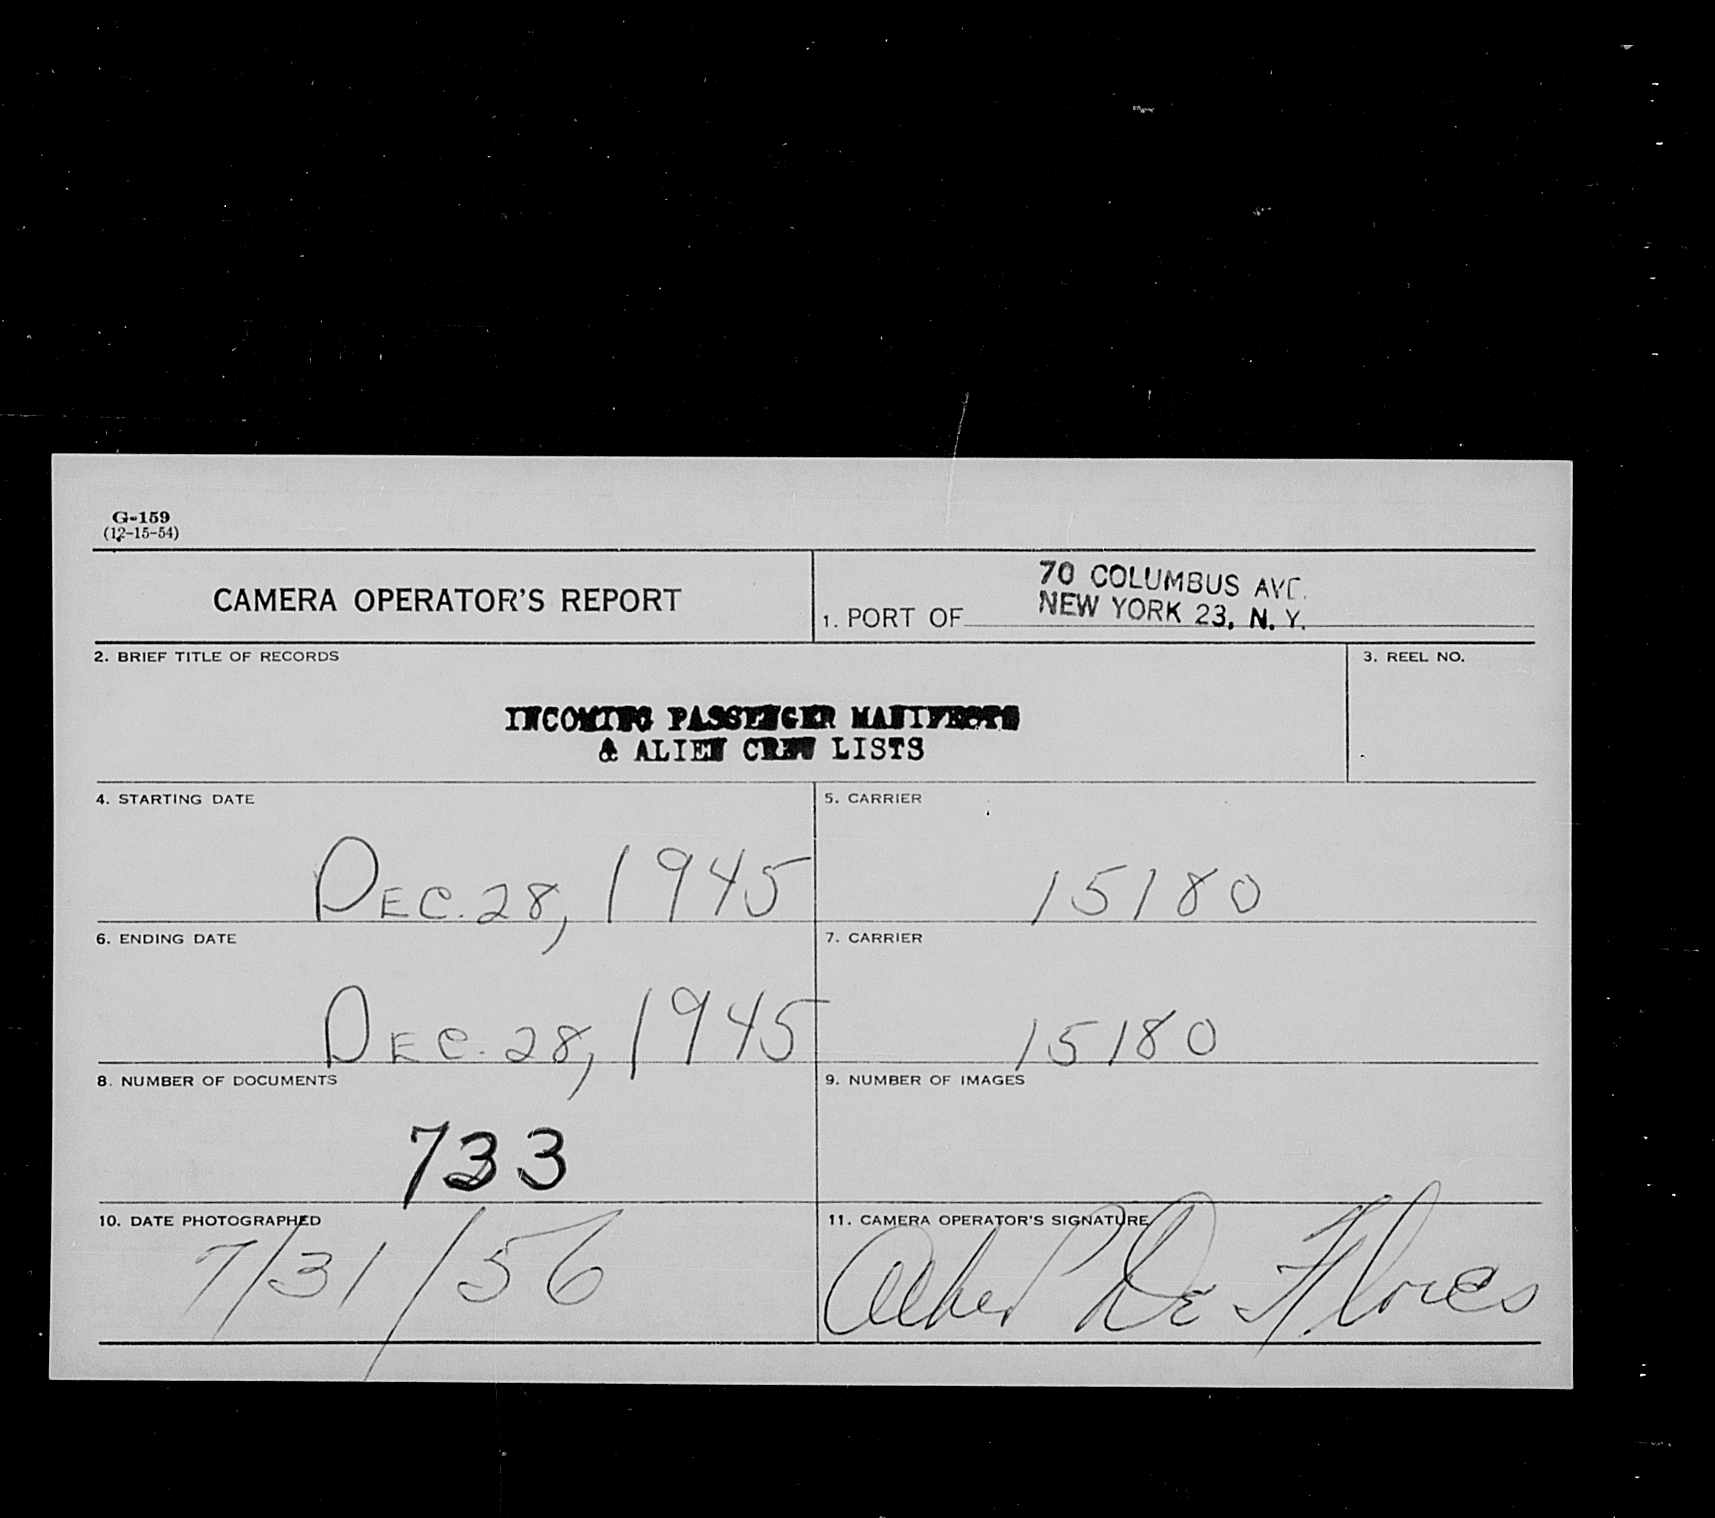 G-159
(12-15-54)
CAMERA OPERATOR'S REPORT
1. PORT OF
70 COLUMBUS AVE.
NEW YORK 23, N. Y.
2. BRIEF TITLE OF RECORDS
3. REEL NO.
INCOMING PASSENGER MANIFESTS
& ALIEN CREW LISTS
4. STARTING DATE
5. CARRIER
DEC. 28, 1945
15180
6. ENDING DATE
7. CARRIER
DEC. 28, 1945
15180
8. NUMBER OF DOCUMENTS
9. NUMBER OF IMAGES
733
10. DATE PHOTOGRAPHED
11. CAMERA OPERATOR'S SIGNATURE
7/31/56
De Flores